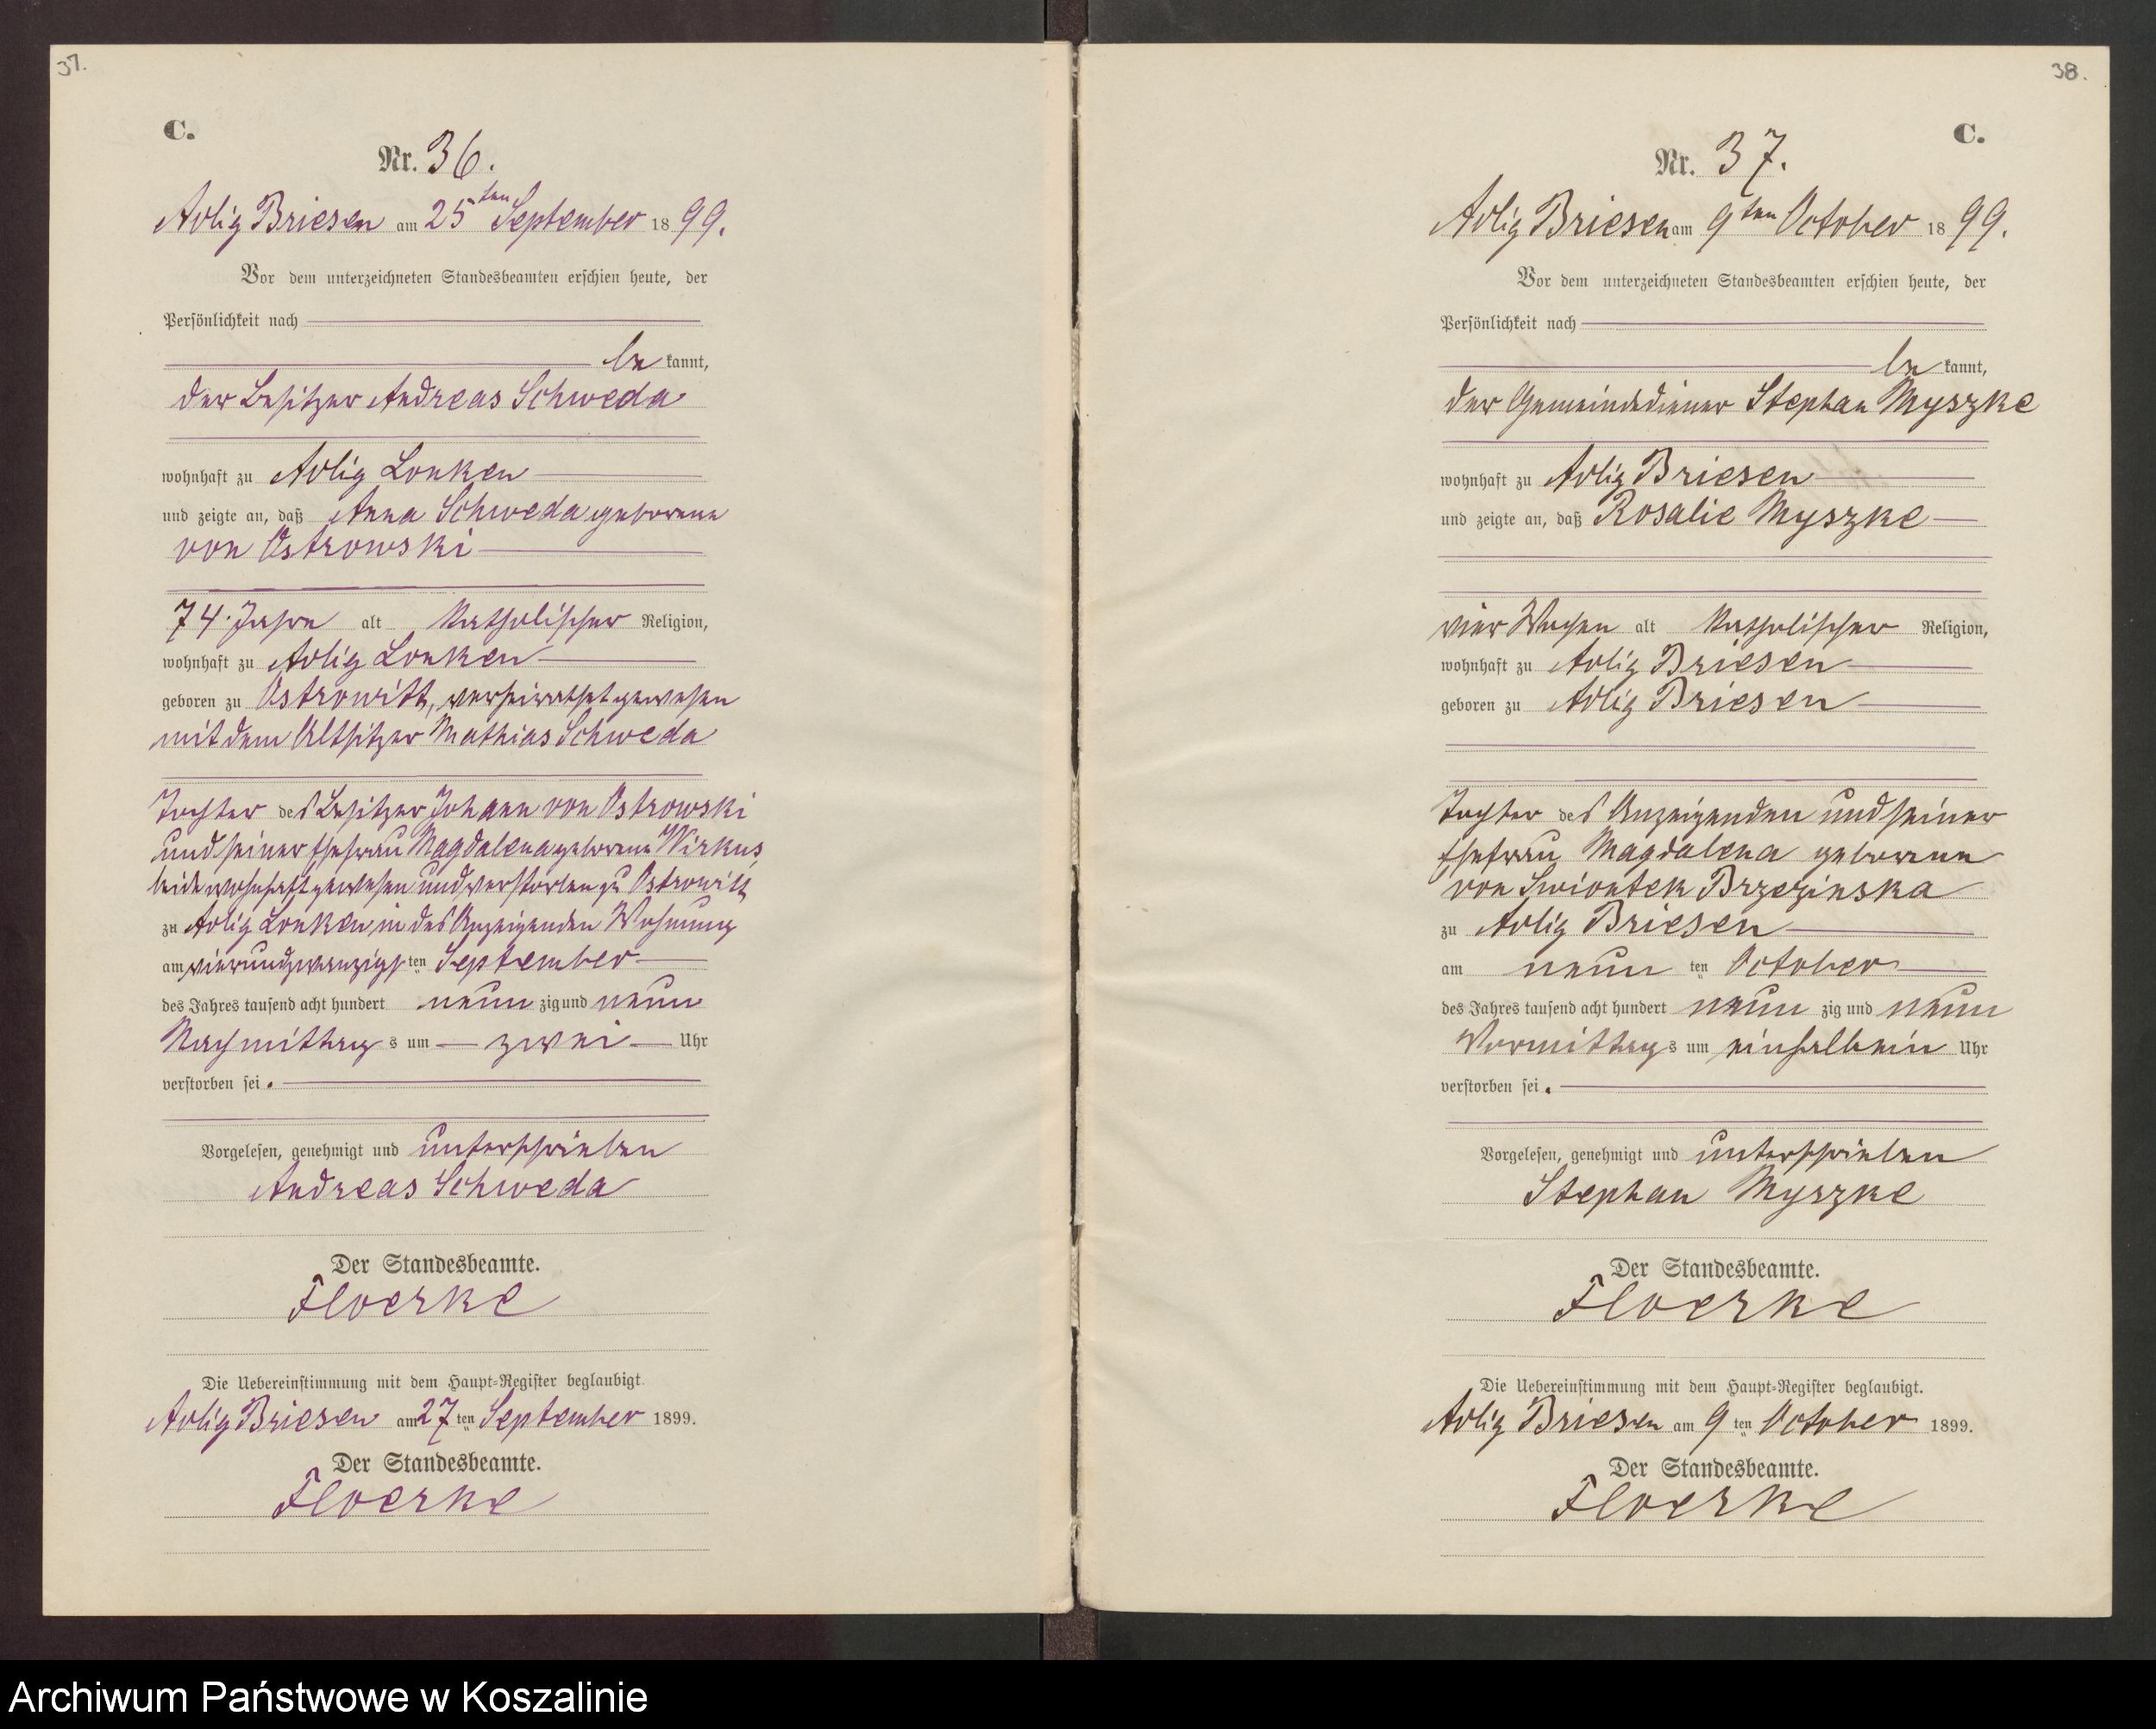 37.
C.
Nr. 36.
Adlig Briesen am 25ten September 1899.
Vor dem unterzeichneten Standesbeamten erschien heute, der
Persönlichkeit nach
be kannt,
der Besitzer Andreas Schweda
wohnhaft zu Adlig Lonken
und zeigte an, daß Anna Schweda geborene
von Ostrowski
74 Jahre alt katholischer Religion,
wohnhaft zu Adlig Lonken
geboren zu Ostrowitt, verheirathet gewesen
mit dem Altsitzer Mathias Schweda
Tochter des Besitzer Johann von Ostrowski
und seiner Ehefrau Magdalena geborene Wirkus,
beide wohnhaft gewesen und verstorben zu Ostrowitt
zu Adlig Lonken in des Anzeigenden Wohnung
am vierundzwanzigsten September
des Jahres tausend acht hundert neun zig und neun
Nachmittags um zwei Uhr
verstorben sei.
Vorgelesen, genehmigt und unterschrieben
Andreas Schweda
Der Standesbeamte.
Floerke
Die Uebereinstimmung mit dem Haupt-Register beglaubigt.
Adlig Briesen am 27ten September 1899.
Der Standesbeamte.
Floerke
38.
C.
Nr. 37.
Adlig Briesen am 9ten October 1899.
Vor dem unterzeichneten Standesbeamten erschien heute, der
Persönlichkeit nach
be kannt,
der Gemeindediener Stephan Myszke
wohnhaft zu Adlig Briesen
und zeigte an, daß Rosalie Myszke
vier Wochen alt katholischer Religion,
wohnhaft zu Adlig Briesen
geboren zu Adlig Briesen
Tochter des Anzeigenden und seiner
Ehefrau Magdalena geborene
von Swiontek Brzezinska
zu Adlig Briesen
am neun ten October
des Jahres tausend acht hundert neun zig und neun
Vormittags um einhalb ein Uhr
verstorben sei.
Vorgelesen, genehmigt und unterschrieben
Stephan Myszke
Der Standesbeamte.
Floerke
Die Uebereinstimmung mit dem Haupt-Register beglaubigt.
Adlig Briesen am 9ten October 1899.
Der Standesbeamte.
Floerke
Archiwum Państwowe w Koszalinie